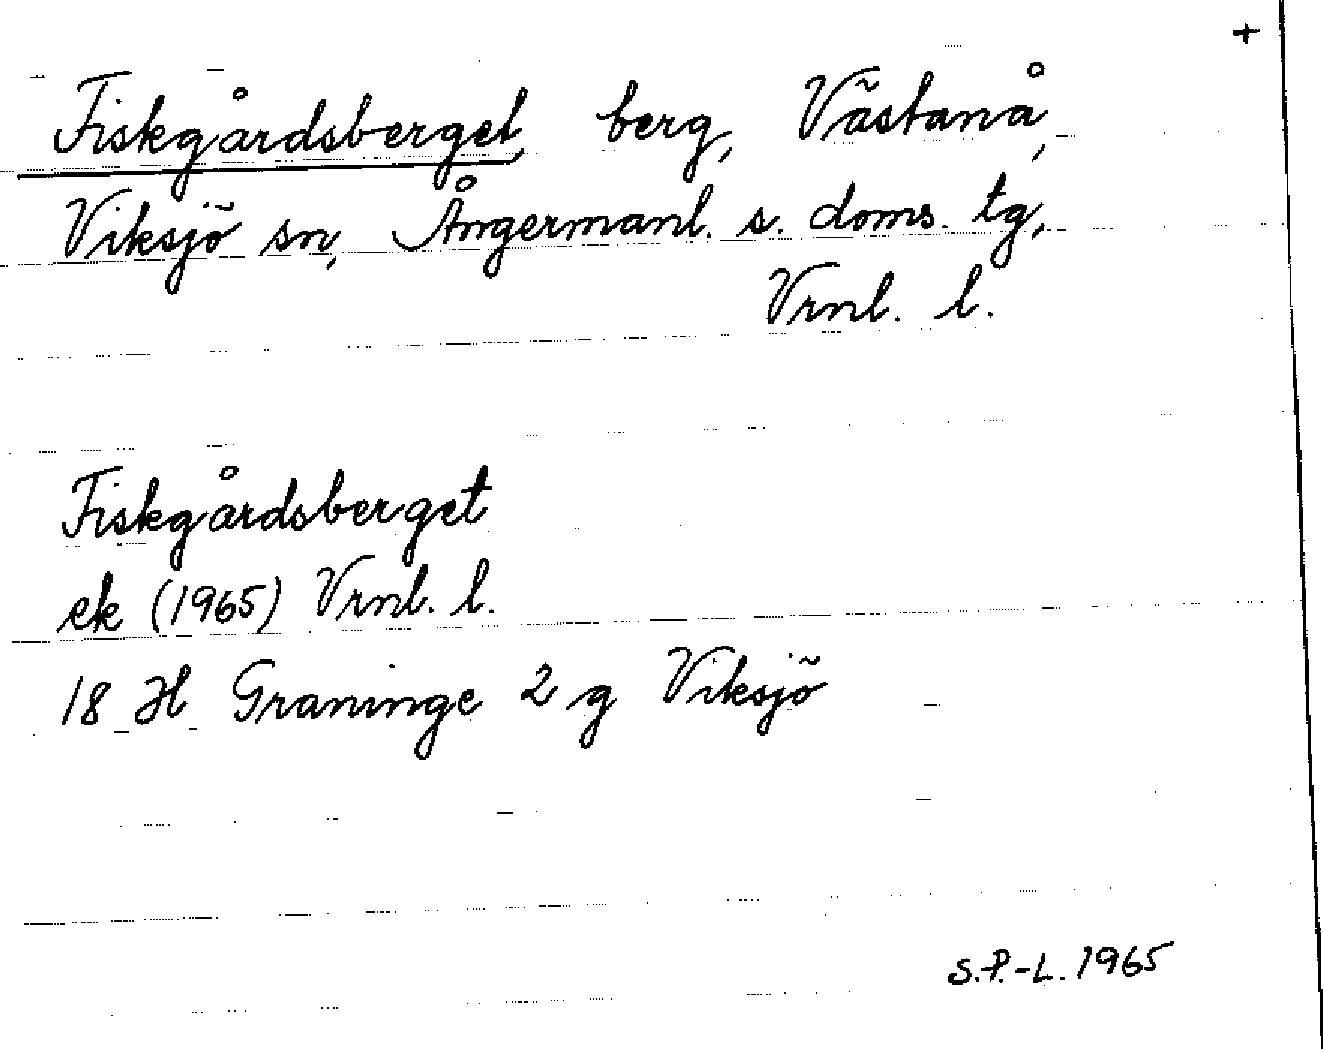 +
Fiskgårdsberget, berg, Västanå,
Viksjö sn, Ångermanl. s. doms. tg,
Vrnl. l.
Fiskgårdsberget
ek (1965) Vrnl. l.
18 H Graninge 2 g Viksjö
S.P.-L. 1965